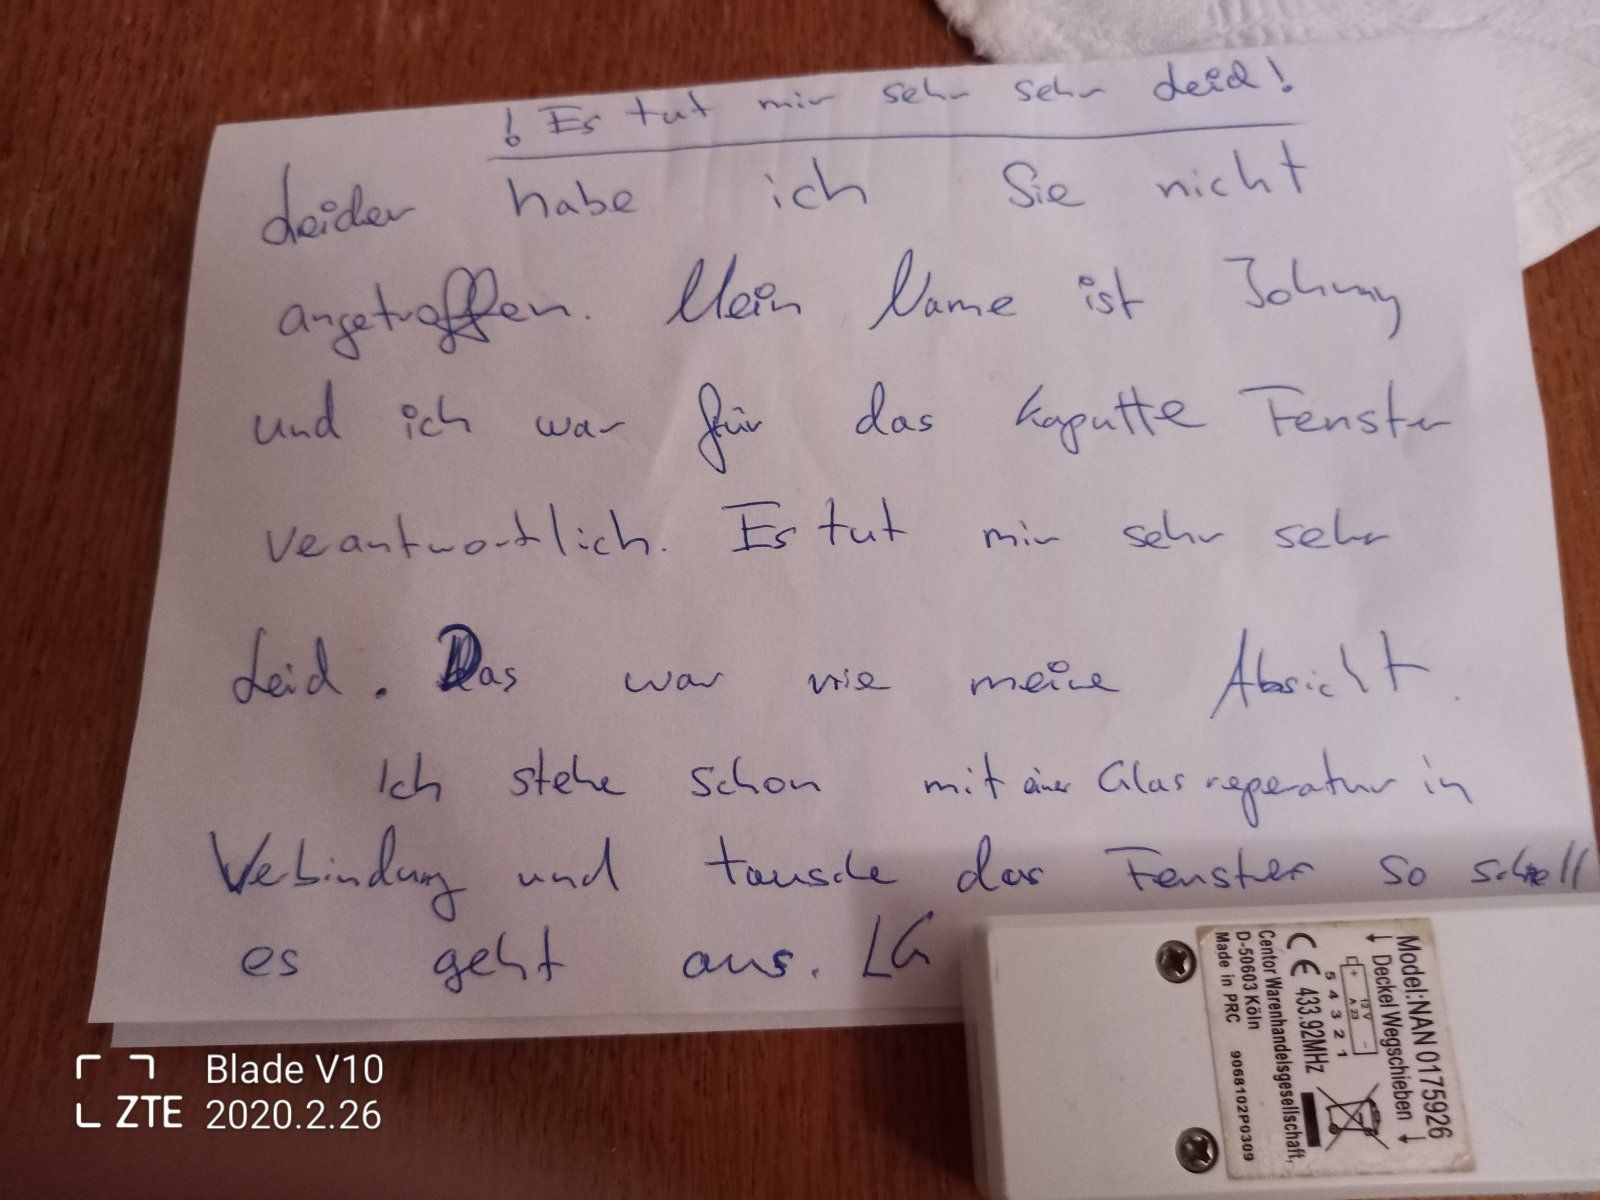 ! Es tut mir sehr sehr Leid!
Leider habe ich Sie nicht
angetroffen. Mein Name ist Johnny
und ich war für das kaputte Fenster
verantwortlich. Es tut mir sehr sehr
Leid. Das war nie meine Absicht.
Ich stehe schon mit einer Glasreperatur in
Verbindung und tausche das Fenster so schnell
es geht aus. LG
Model:NAN 0175926
↓ Deckel Wegschieben ↓
12 V
A 23
5 4 3 2 1
CE 433.92MHz
Centor Warenhandelsgesellschaft,
D-50603 Köln
Made in PRC 9068102P0309
Blade V10
ZTE 2020.2.26